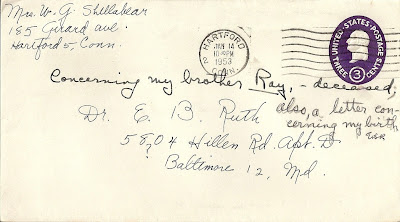 Mrs. W. G. Shellabear
185 Girard ave.
Hartford 5, Conn.
HARTFORD
JAN 14
1953
CONN.
UNITED STATES POSTAGE
3
THREE CENTS
Concerning my brother Ray, - deceased;
also, a letter con-
cerning my birth
EBR
Dr. E. B. Ruth
5802 Hillen Rd. Apt. D
Baltimore 12, Md.